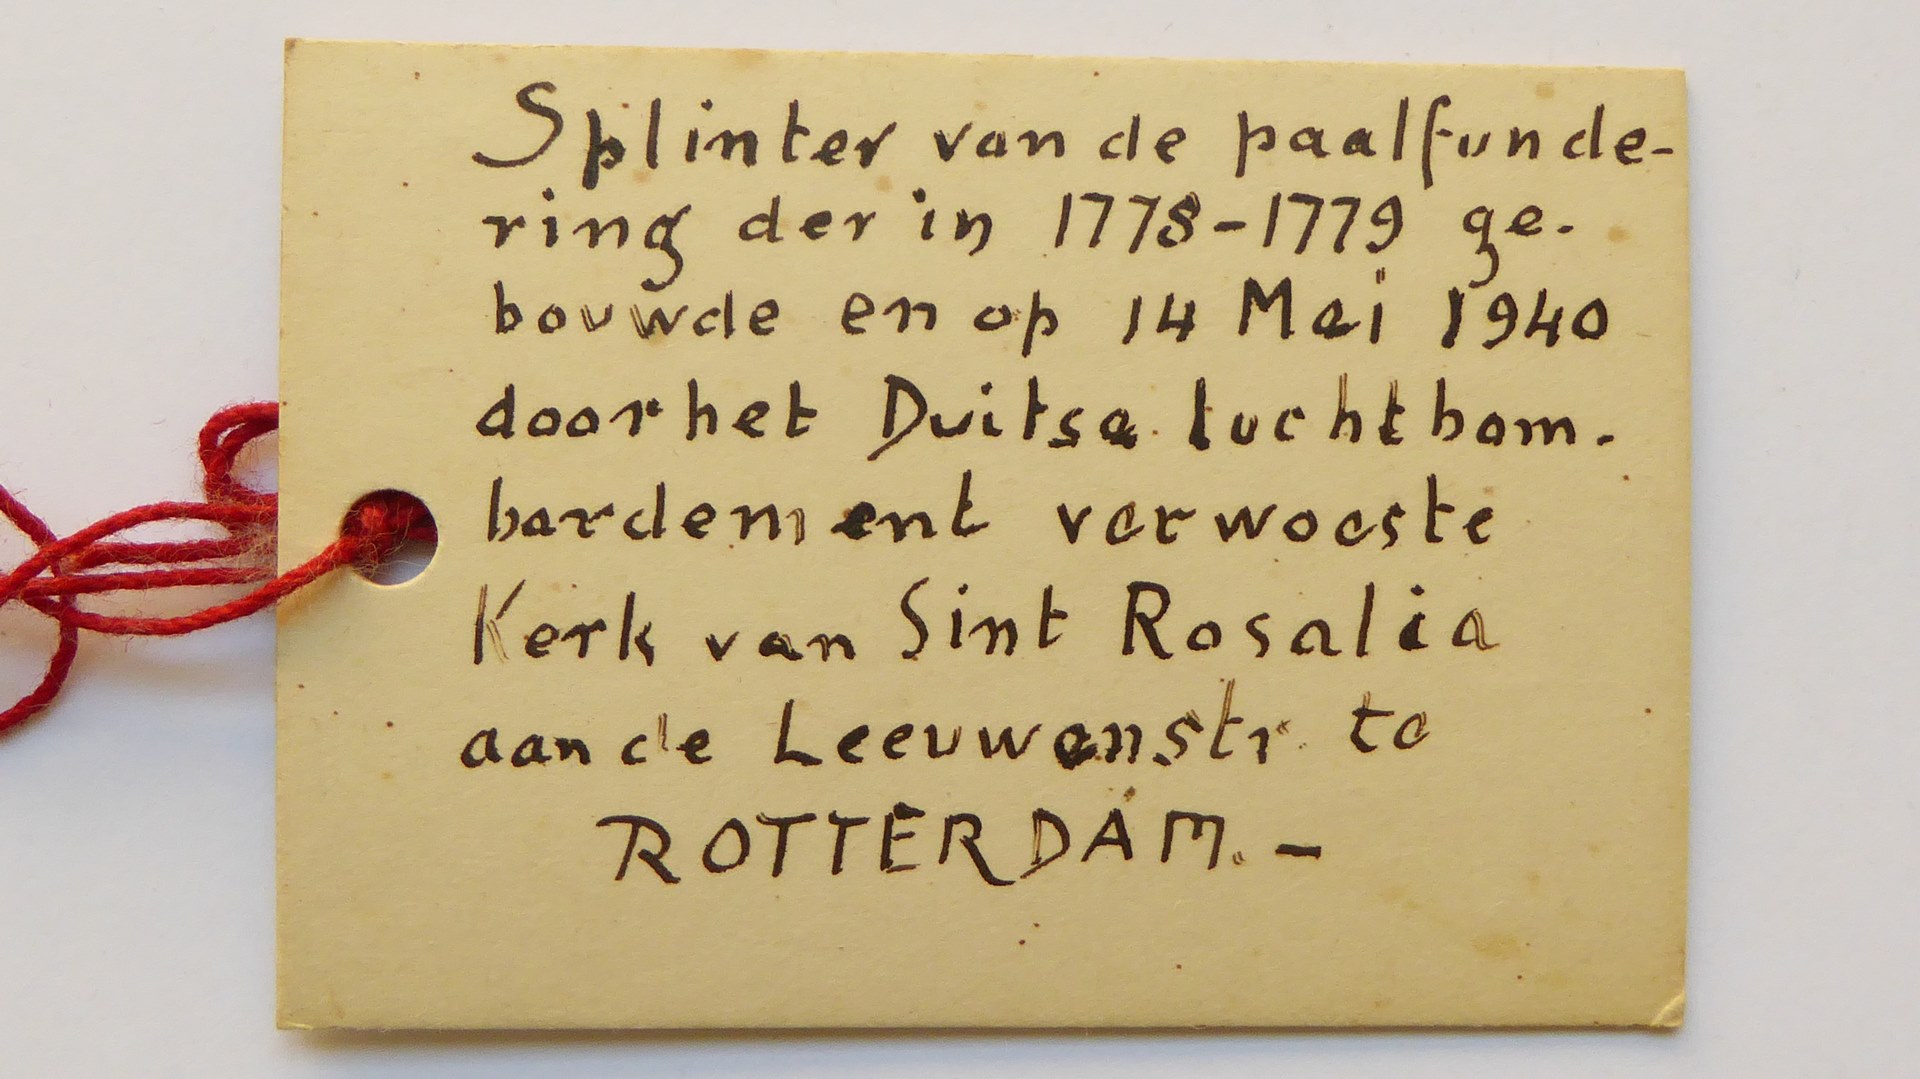 Splinter van de paalfunde-
ring der in 1778-1779 ge-
bouwde en op 14 Mei 1940
door het Duitse luchtbom-
bardement verwoeste
Kerk van Sint Rosalia
aan de Leeuwenstr. te
ROTTERDAM. -